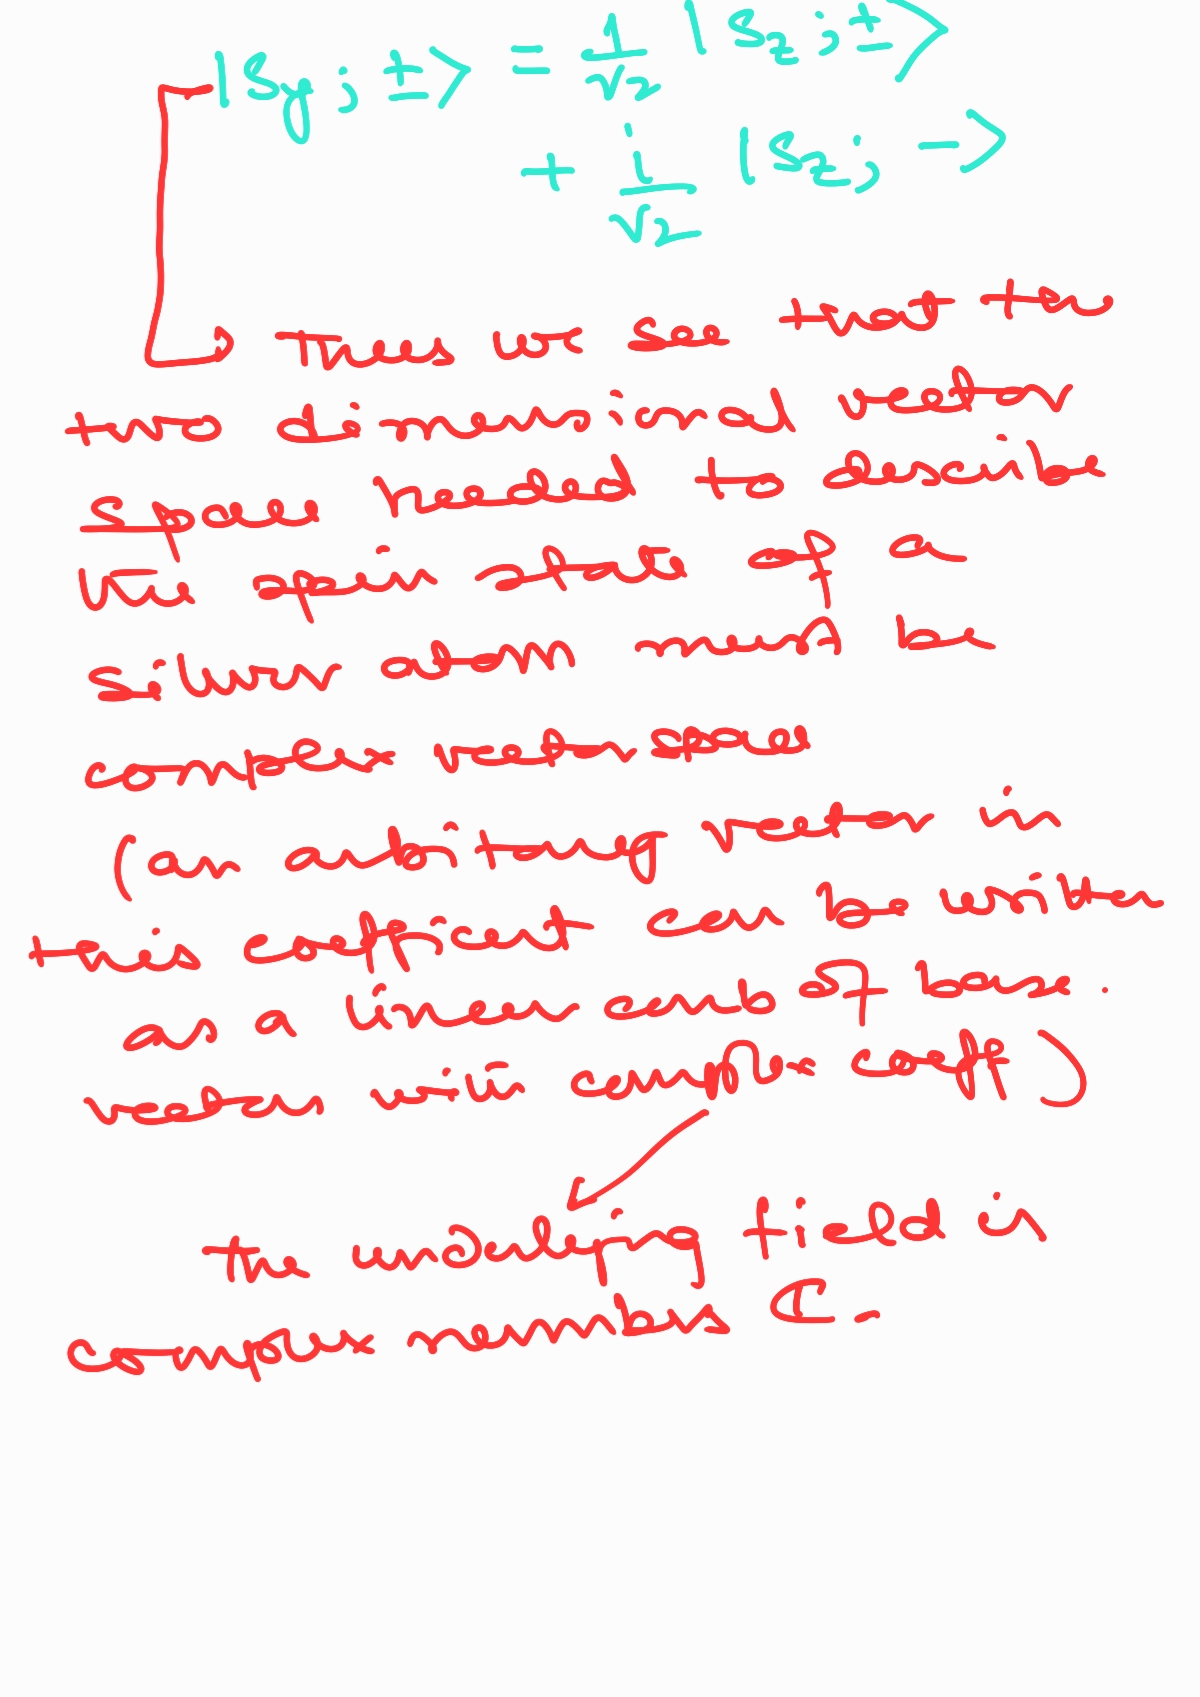 |Sy ; ±⟩ = 1/√2 |Sz ; ±⟩
+ i/√2 |Sz ; -⟩
thus we see that the
two dimensional vector
space needed to describe
the spin state of a
silver atom must be
complex vector space
(an arbitrary vector in
this coefficent can be written
as a linear comb of base.
vectors with complex coeff)
The underlying field is
complex numbers ℂ.